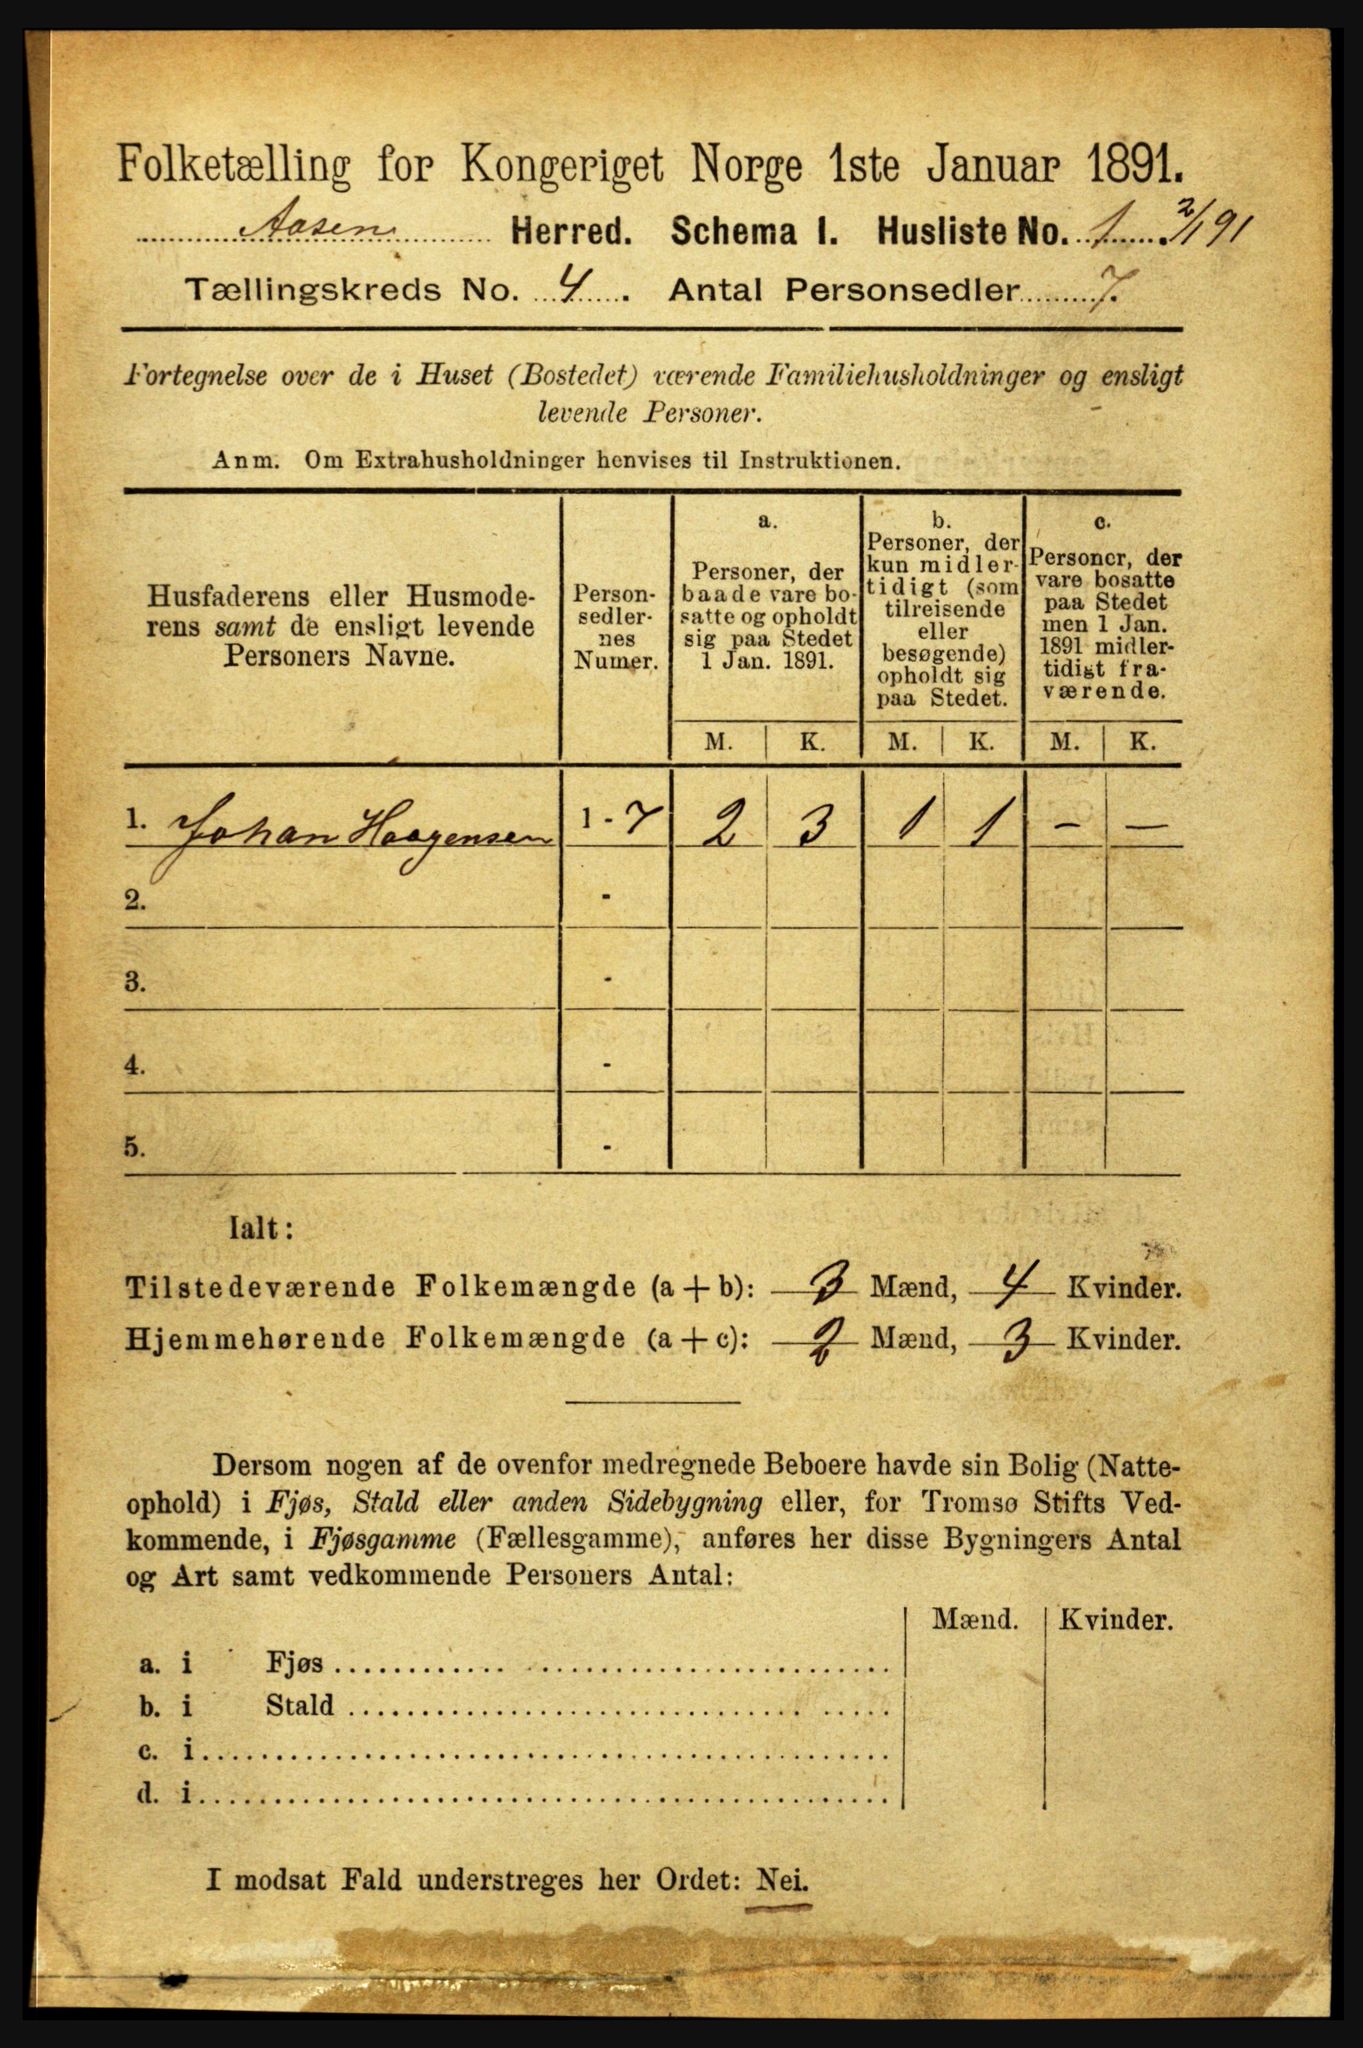 Folketælling for Kongeriget Norge 1ste Januar 1891.
Aasen Herred. Schema I. Husliste No. 1. 2/1 91
Tællingskreds No. 4. Antal Personsedler 7.
Fortegnelse over de i Huset (Bostedet) værende Familiehusholdninger og ensligt
levende Personer.
Anm. Om Extrahusholdninger henvises til Instruktionen.
Husfaderens eller Husmode-
rens samt de ensligt levende
Personers Navne.
Person-
sedler-
nes
Numer.
a.
Personer, der
baade vare bo-
satte og opholdt
sig paa Stedet
1 Jan. 1891.
b.
Personer, der
kun midler-
tidigt (som
tilreisende
eller
besøgende)
opholdt sig
paa Stedet.
c.
Personer, der
vare bosatte
paa Stedet
men 1 Jan.
1891 midler-
tidigt fra-
værende.
M. K. M. K. M. K.
1. Johan Haagensen 1 - 7 2 3 1 1 - -
2. -
3. -
4. -
5. -
Ialt:
Tilstedeværende Folkemængde (a + b): 3 Mænd, 4 Kvinder.
Hjemmehørende Folkemængde (a + c): 2 Mænd, 3 Kvinder.
Dersom nogen af de ovenfor medregnede Beboere havde sin Bolig (Natte-
ophold) i Fjøs, Stald eller anden Sidebygning eller, for Tromsø Stifts Ved-
kommende, i Fjøsgamme (Fællesgamme), anføres her disse Bygningers Antal
og Art samt vedkommende Personers Antal:
Mænd. Kvinder.
a. i Fjøs
b. i Stald
c. i
d. i
I modsat Fald understreges her Ordet: Nei.